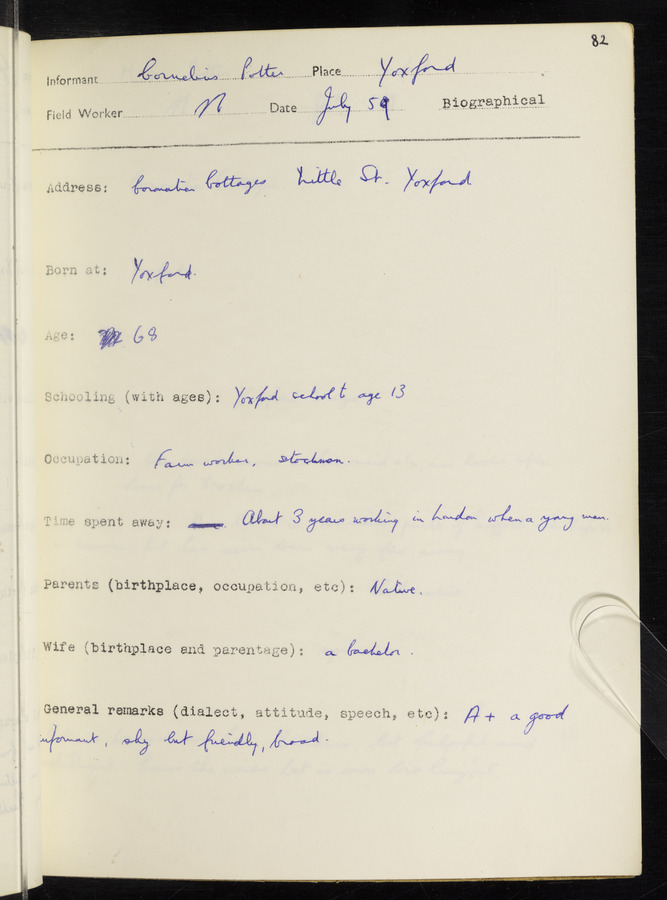 82
Informant Cornelius Potter Place Yoxford
Field Worker N Date July 59 Biographical
Address: Coronation Cottages Little St. Yoxford
Born at: Yoxford.
Age: 68
Schooling (with ages): Yoxford school to age 13
Occupation: Farm worker, stockman.
Time spent away: About 3 years working in London when a young man.
Parents (birthplace, occupation, etc): Native.
Wife (birthplace and parentage): a bachelor.
General remarks (dialect, attitude, speech, etc): A+ a good
informant, shy but friendly, broad.